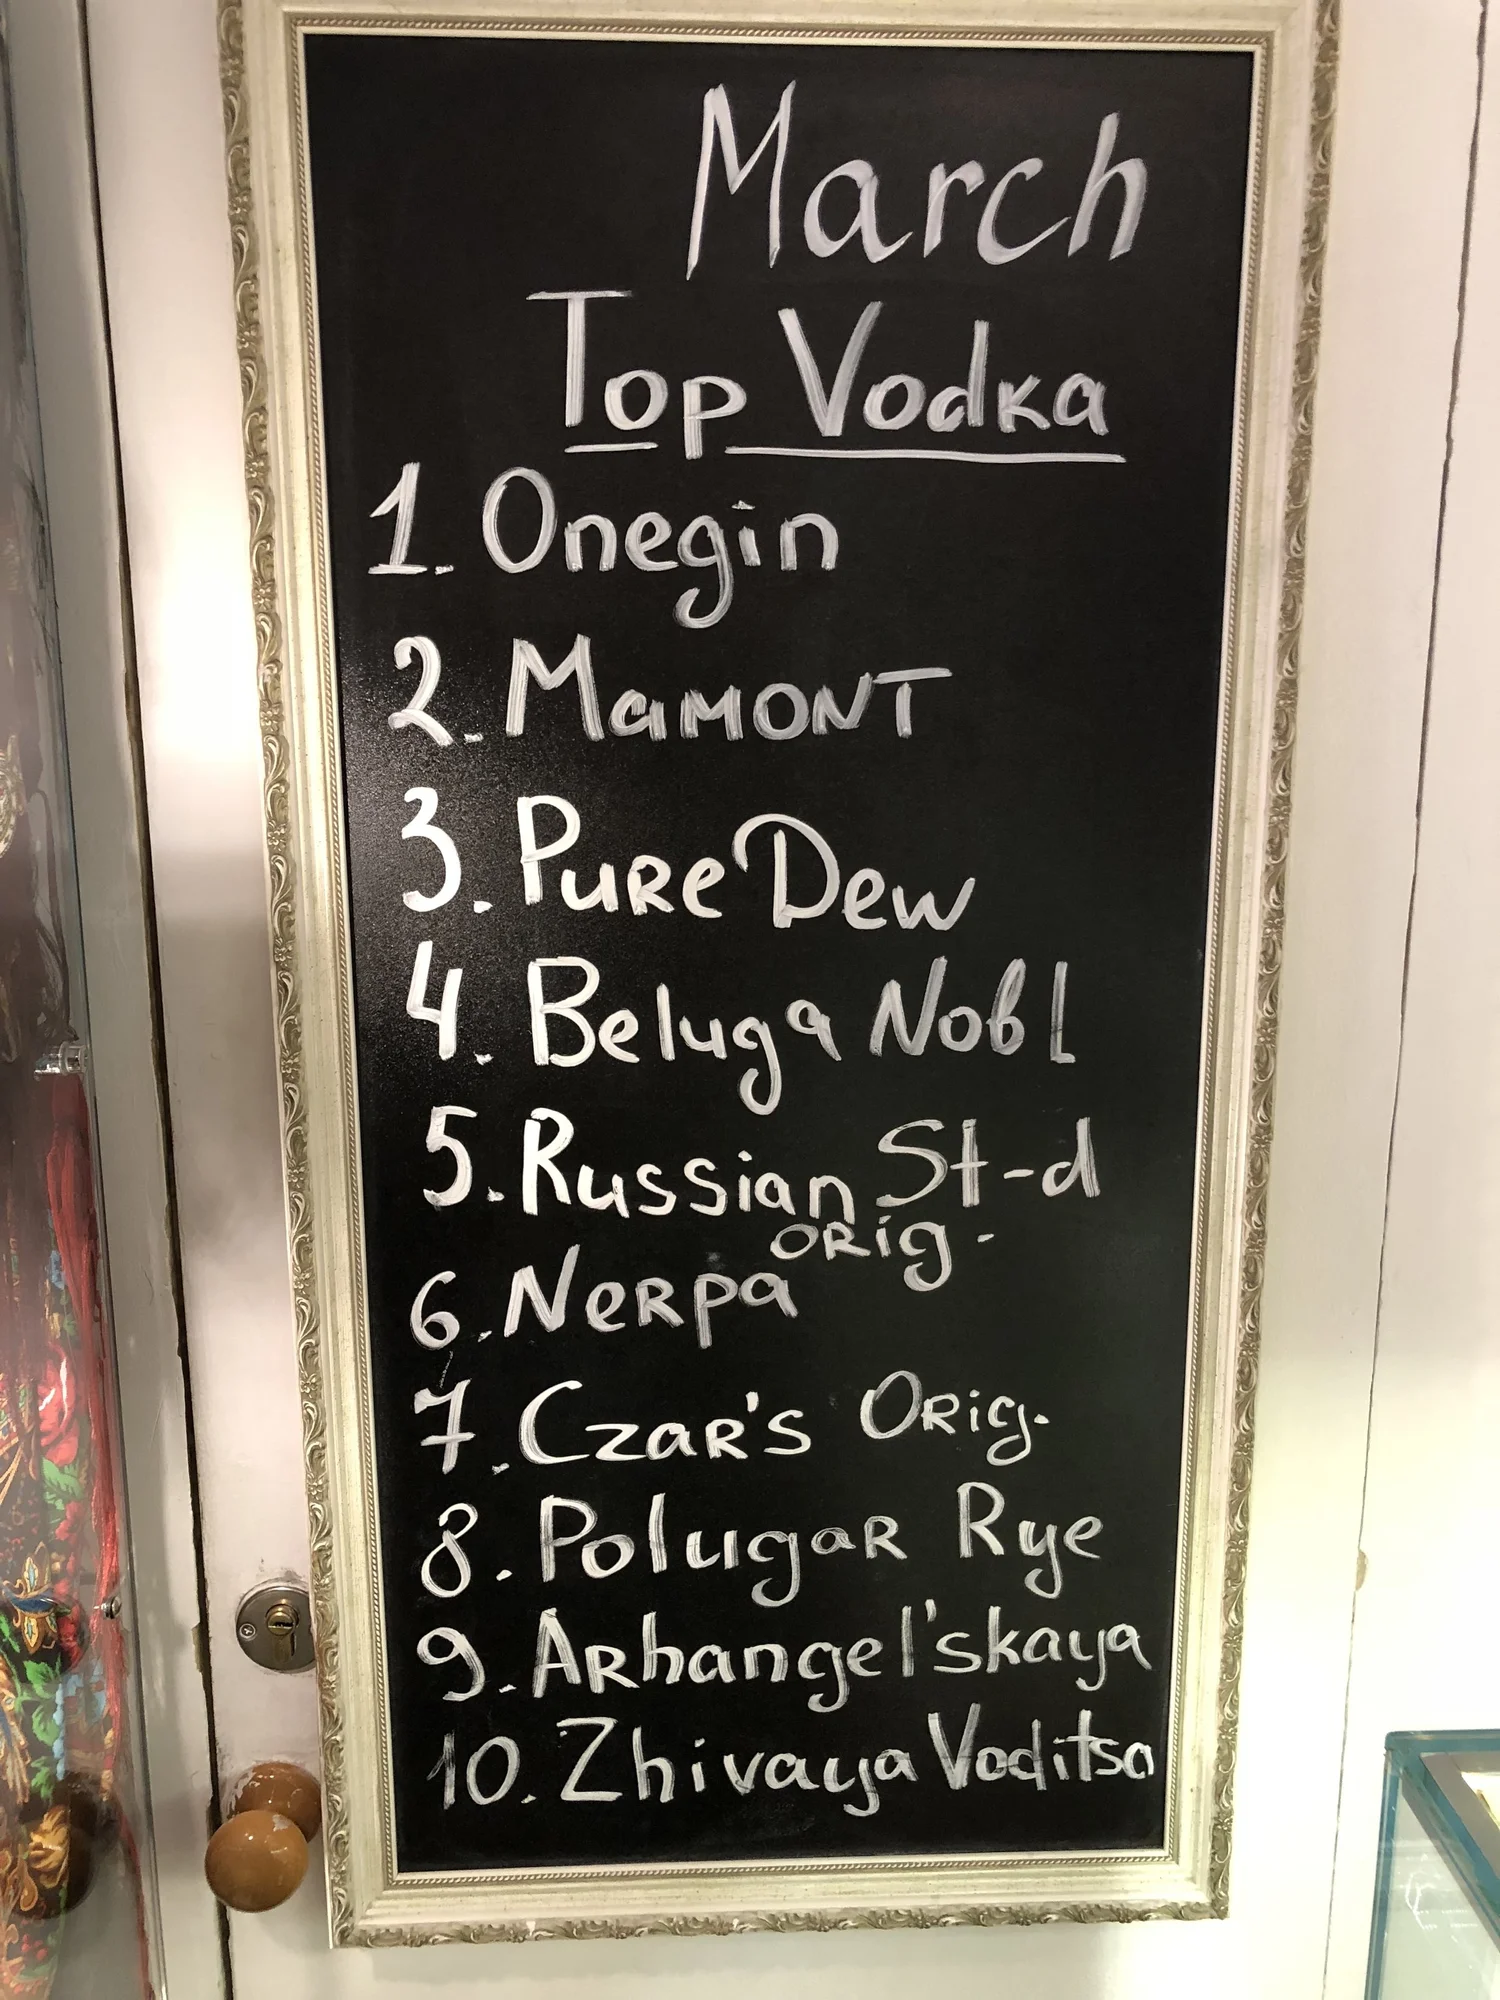 March
Top Vodka
1. Onegin
2. Mamont
3. Pure Dew
4. Beluga Nobl
5. Russian St-d
orig.
6. Nerpa
7. Czar's Orig.
8. Polugar Rye
9. Arhangel'skaya
10. Zhivaya Voditsa